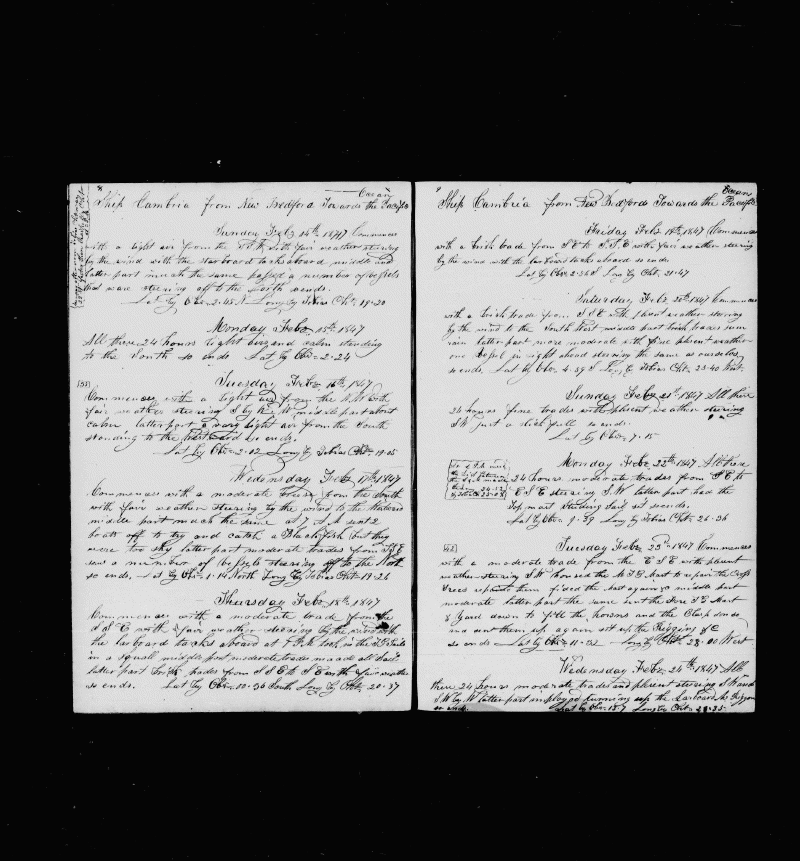 8
Ocean
Ship Cambria from New Bedford Towards the Pacific
Sunday Feb 14th 1847 Commences
with a light air from the with fair weather steering
by the wind with the starboard tacks aboard middle and
latter part much the same passed a number of vessels
that was steering off to the North so ends.
Lat by Obs 2-48 N Long by Tobias Chr 19-20
Monday Feb 15th 1847
All these 24 hours light airs and calm standing
to the South so ends Lat by Obs 2-24
Tuesday Feb 16th 1847
Commences with a light air from the with
fair weather steering S by W middle part about
calm latter part a very light air from the South
standing to the Westward so ends.
Lat by Obs 2-02 Long by Tobias Chr 19-05
Wednesday Feb 17th 1847
Commences with a moderate breeze from the South
with fair weather steering by the wind to the
middle part much the same at 7 A M sent 2
boats off to try and catch a Blackfish but they
were too shy latter part moderate trades from
saw a number of vessels steering off to the North
so ends. Lat by Obs 1-14 North Long by Tobias Chr 19-26
Thursday Feb 18th 1847
Commences with a moderate trade from the
S S E with fair weather steering by the wind with
the larboard tacks aboard at took in the
in a squall middle part moderate trades made all sail
latter part brisk trades from S S E to S E with fair weather
so ends. Lat by Obs 00-36 South Long by Chr 20-37
9
Ocean
Ship Cambria from New Bedford Towards the Pacific
Friday Feb 19th 1847 Commences
with a brisk trade from S E to S S E with fair weather steering
by the wind with the larboard tacks aboard so ends
Lat by Obs 2-36 S Long by Chr 21-47
Saturday Feb 20th 1847 Commences
with a brisk trade from S S E with pleasent weather steering
by the wind to the South West middle part brisk trades sum
rain latter part more moderate with fine plesent weather
one vessel in sight ahead steering the same as ourselves
so ends. Lat by Obs 4-59 S Long by Tobias Chr 23-40 West.
Sunday Feb 21st 1847 All these
24 hours fine trades with plesent weather steering
S W just a full so ends.
Lat by Obs 7-15
Monday Feb 22nd 1847 All these
24 hours moderate trades from S E to
E S E steering S.W. latter part had the
Top mast studding sail set so ends.
Lat by Obs 9-39 Long by Tobias Chr 26-36
Tuesday Feb 23rd 1847 Commences
with a moderate trade from the E S E with plesent
weather steering S W housed the Mast to repair the Cross
Trees repaired them fided the Mast again so middle part
moderate latter part the same sent the Fore Mast
& Yard down to the and the
and sent them up again set up the Rigging &c
so ends Lat by Obs 11-02 Long by Chr 28-00 West
Wednesday Feb 24th 1847 All
these 24 hours moderate trades and plesent steering S W and
S W by W latter part imployed the larboard
so ends. Lat by Obs Long by Chr